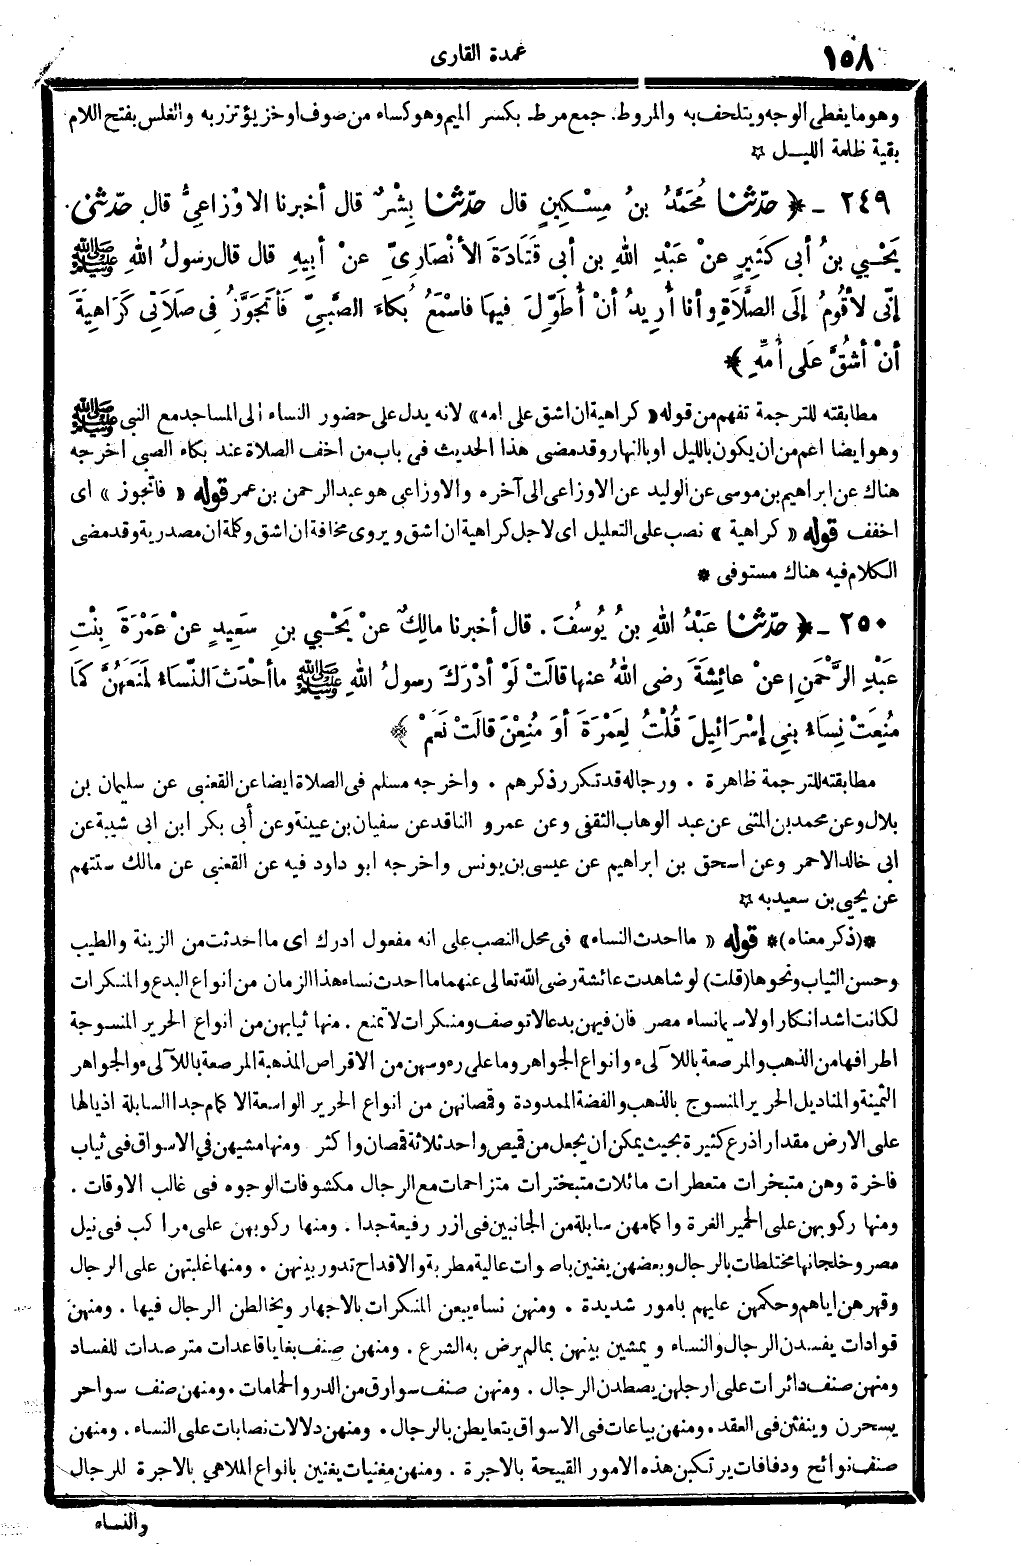 ١٥٨
عمدة القارى
وهو ما يغطى الوجه ويتلحف به والمروط. جمع مرط بكسر الميم وهو كساء من صوف او خز يؤتزر به والغلس بفتح اللام
بقية ظلمة الليل ☆
٢٤٩ ـ ﴿ حدّثنا مُحَمَّدُ بنُ مِسْكِينٍ قال حدّثنا بِشْرٌ قال أخبرنا الاوْزاعِىُّ قال حدّثنى
يَحْيي بنُ أبى كَثِيرٍ عنْ عَبْدِ اللهِ بن أبى قَتَادَةَ الأنْصَارِىِّ عنْ أبيهِ قال قال رسولُ اللهِ ﷺ
إنّى لأقُومُ إلَى الصَّلَاةِ وأنا أُرِيدُ أنْ أُطَوِّلَ فيهَا فاسْمَعُ بُكاءَ الصَّبىِّ فَأتَجَوَّزُ فى صَلَاتى كَرَاهِيَةَ
أنْ أشُقَّ عَلَى أُمِّهِ ﴾
مطابقته للترجمة تفهم من قوله «كراهية ان اشق على امه» لانه يدل على حضور النساء الى المساجد مع النبى ﷺ
وهو ايضا اعم من ان يكون بالليل او بالنهار وقد مضى هذا الحديث فى باب من اخف الصلاة عند بكاء الصبى اخرجه
هناك عن ابراهيم بن موسى عن الوليد عن الاوزاعى الى آخره والاوزاعى هو عبد الرحمن بن عمر قوله «فاتجوز» اى
اخفف قوله «كراهية» نصب على التعليل اى لاجل كراهية ان اشق ويروى مخافة ان اشق وكلمة ان مصدرية وقد مضى
الكلام فيه هناك مستوفى *
٢٥٠ ـ ﴿ حدّثنا عَبْدُ اللهِ بنُ يُوسُفَ . قال أخبرنا مالِكٌ عنْ يَحْيي بنِ سَعِيدٍ عنْ عَمْرَةَ بِنْتِ
عَبْدِ الرَّحْمَنِ عنْ عائِشَةَ رضى اللهُ عنها قالَتْ لَوْ أدْرَكَ رسولُ اللهِ ﷺ ما أحْدَثَ النِّسَاءُ لمَنَعَهُنَّ كَمَا
مُنِعَتْ نِسَاءُ بنِى إسْرَائِيلَ قُلْتُ لِعَمْرَةَ أوَ مُنِعْنَ قالَتْ نَعَمْ ﴾
مطابقته للترجمة ظاهرة . ورجاله قد تكرر ذكرهم . واخرجه مسلم فى الصلاة ايضا عن القعنبى عن سليمان بن
بلال وعن محمد بن المثنى عن عبد الوهاب الثقفى وعن عمرو الناقد عن سفيان بن عيينة وعن أبى بكر ابن ابى شيبة عن
ابى خالد الاحمر وعن اسحق بن ابراهيم عن عيسى بن يونس واخرجه ابو داود فيه عن القعنبى عن مالك ستتهم
عن يحيى بن سعيد به ☆
*(ذكر معناه)* قوله «ما احدث النساء» فى محل النصب على انه مفعول ادرك اى ما احدثت من الزينة والطيب
وحسن الثياب ونحوها (قلت) لو شاهدت عائشة رضى الله تعالى عنها ما احدث نساء هذا الزمان من انواع البدع والمنكرات
لكانت اشد انكارا ولاسيما نساء مصر فان فيهن بدعا لا توصف ومنكرات لا تمنع . منها ثيابهن من انواع الحرير المنسوجة
اطرافها من الذهب والمرصعة باللآلىء وانواع الجواهر وما على رءوسهن من الاقراص المذهبة المرصعة باللآلىء والجواهر
الثمينة والمناديل الحرير المنسوج بالذهب والفضة الممدودة وقمصانهن من انواع الحرير الواسعة الاكمام جدا السابلة اذيالها
على الارض مقدار اذرع كثيرة بحيث يمكن ان يجعل من قميص واحد ثلاثة قمصان واكثر ومنها مشيهن في الاسواق فى ثياب
فاخرة وهن متبخرات متعطرات مائلات متبخترات متزاحمات مع الرجال مكشوفات الوجوه فى غالب الاوقات .
ومنها ركوبهن على الحمير الفرة واكمامهن سابلة من الجانبين فى ازر رفيعة جدا . ومنها ركوبهن على مراكب فى نيل
مصر وخلجانها مختلطات بالرجال وبعضهن يغنين باصوات عالية مطربة والاقداح تدور بينهن . ومنها غلبتهن على الرجال
وقهرهن اياهم وحكمهن عليهم بامور شديدة . ومنهن نساء يبعن المنكرات بالاجهار ويخالطن الرجال فيها . ومنهن
قوادات يفسدن الرجال والنساء ويمشين بينهن بما لم يرض به الشرع . ومنهن صنف بغايا قاعدات مترصدات للفساد
ومنهن صنف دائرات على ارجلهن يصطدن الرجال . ومنهن صنف سوارق من الدور والحمامات . ومنهن صنف سواحر
يسحرن وينفثن فى العقد . ومنهن بياعات فى الاسواق يتعايطن بالرجال . ومنهن دلالات نصابات على النساء . ومنهن
صنف نوائح ودفافات يرتكبن هذه الامور القبيحة بالاجرة . ومنهن مغنيات يغنين بانواع الملاهي بالاجرة للرجال
والنساء